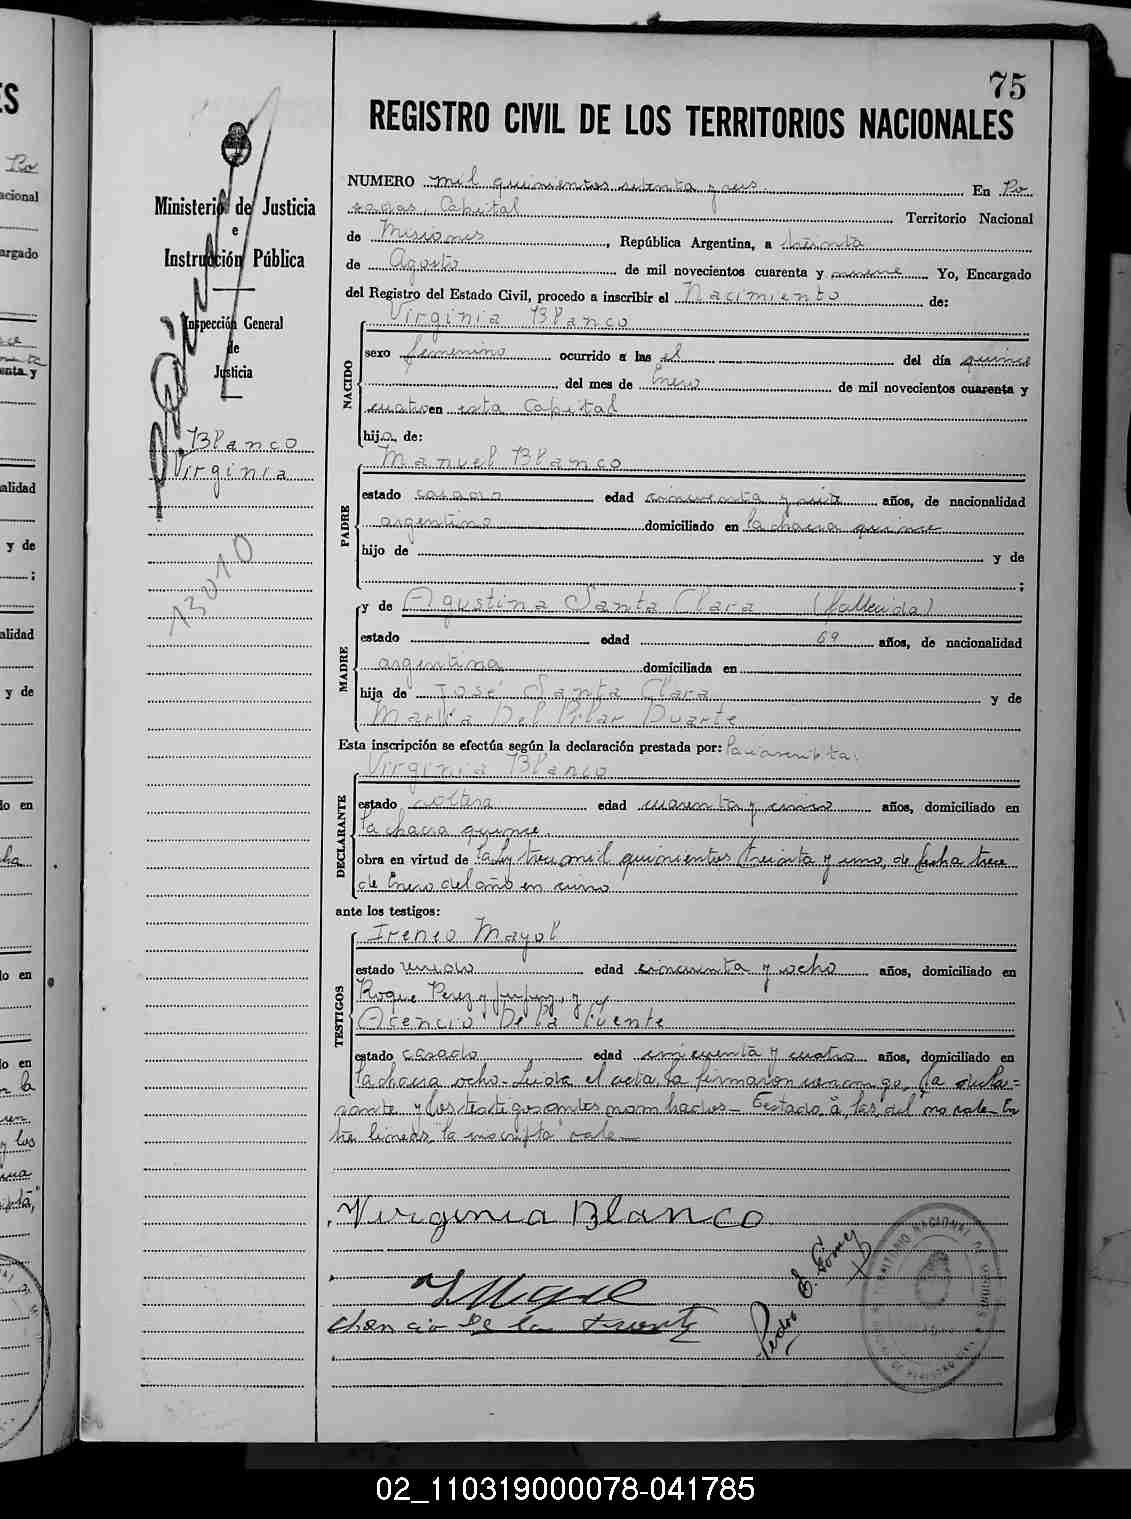 75
REGISTRO CIVIL DE LOS TERRITORIOS NACIONALES
Ministerio de Justicia
e
Instrucción Pública
Inspección General
de
Justicia
Blanco
Virginia
13010
NUMERO mil quinientos setenta y seis En Po
sadas, Capital Territorio Nacional
de Misiones, República Argentina, a treinta
de Agosto de mil novecientos cuarenta y nueve Yo, Encargado
del Registro del Estado Civil, procedo a inscribir el Nacimiento de:
NACIDO
Virginia Blanco
sexo femenino ocurrido a las el del día quince
del mes de Enero de mil novecientos cuarenta y
cuatro en esta Capital
hija de:
PADRE
Manuel Blanco
estado casado edad cincuenta y siete años, de nacionalidad
argentino domiciliado en la chacra quince
hijo de y de
;
MADRE
y de Agustina Santa Clara (fallecida)
estado edad 69 años, de nacionalidad
argentina domiciliada en
hija de José Santa Clara y de
María Del Pilar Duarte
Esta inscripción se efectúa según la declaración prestada por: la inscripta.
DECLARANTE
Virginia Blanco
estado soltera edad cuarenta y cinco años, domiciliado en
la chacra quince.
obra en virtud de la ley trece mil quinientos treinta y uno, de fecha trece
de Enero del año en curso
ante los testigos:
TESTIGOS
Ireneo Mayol
estado viudo edad cincuenta y ocho años, domiciliado en
Roque Perez y Jujuy, y
Asencio De la Fuente
estado casado edad cincuenta y cuatro años, domiciliado en
la chacra ocho - Leída el acta, la firmaron conmigo, la decla=
rante y los testigos antes nombrados - Testado, a las, del no vale - En
tre líneas "la inscripta" vale
Virginia Blanco
I Mayol
Asencio De la Fuente
Pedro E. Gómez
02_110319000078-041785